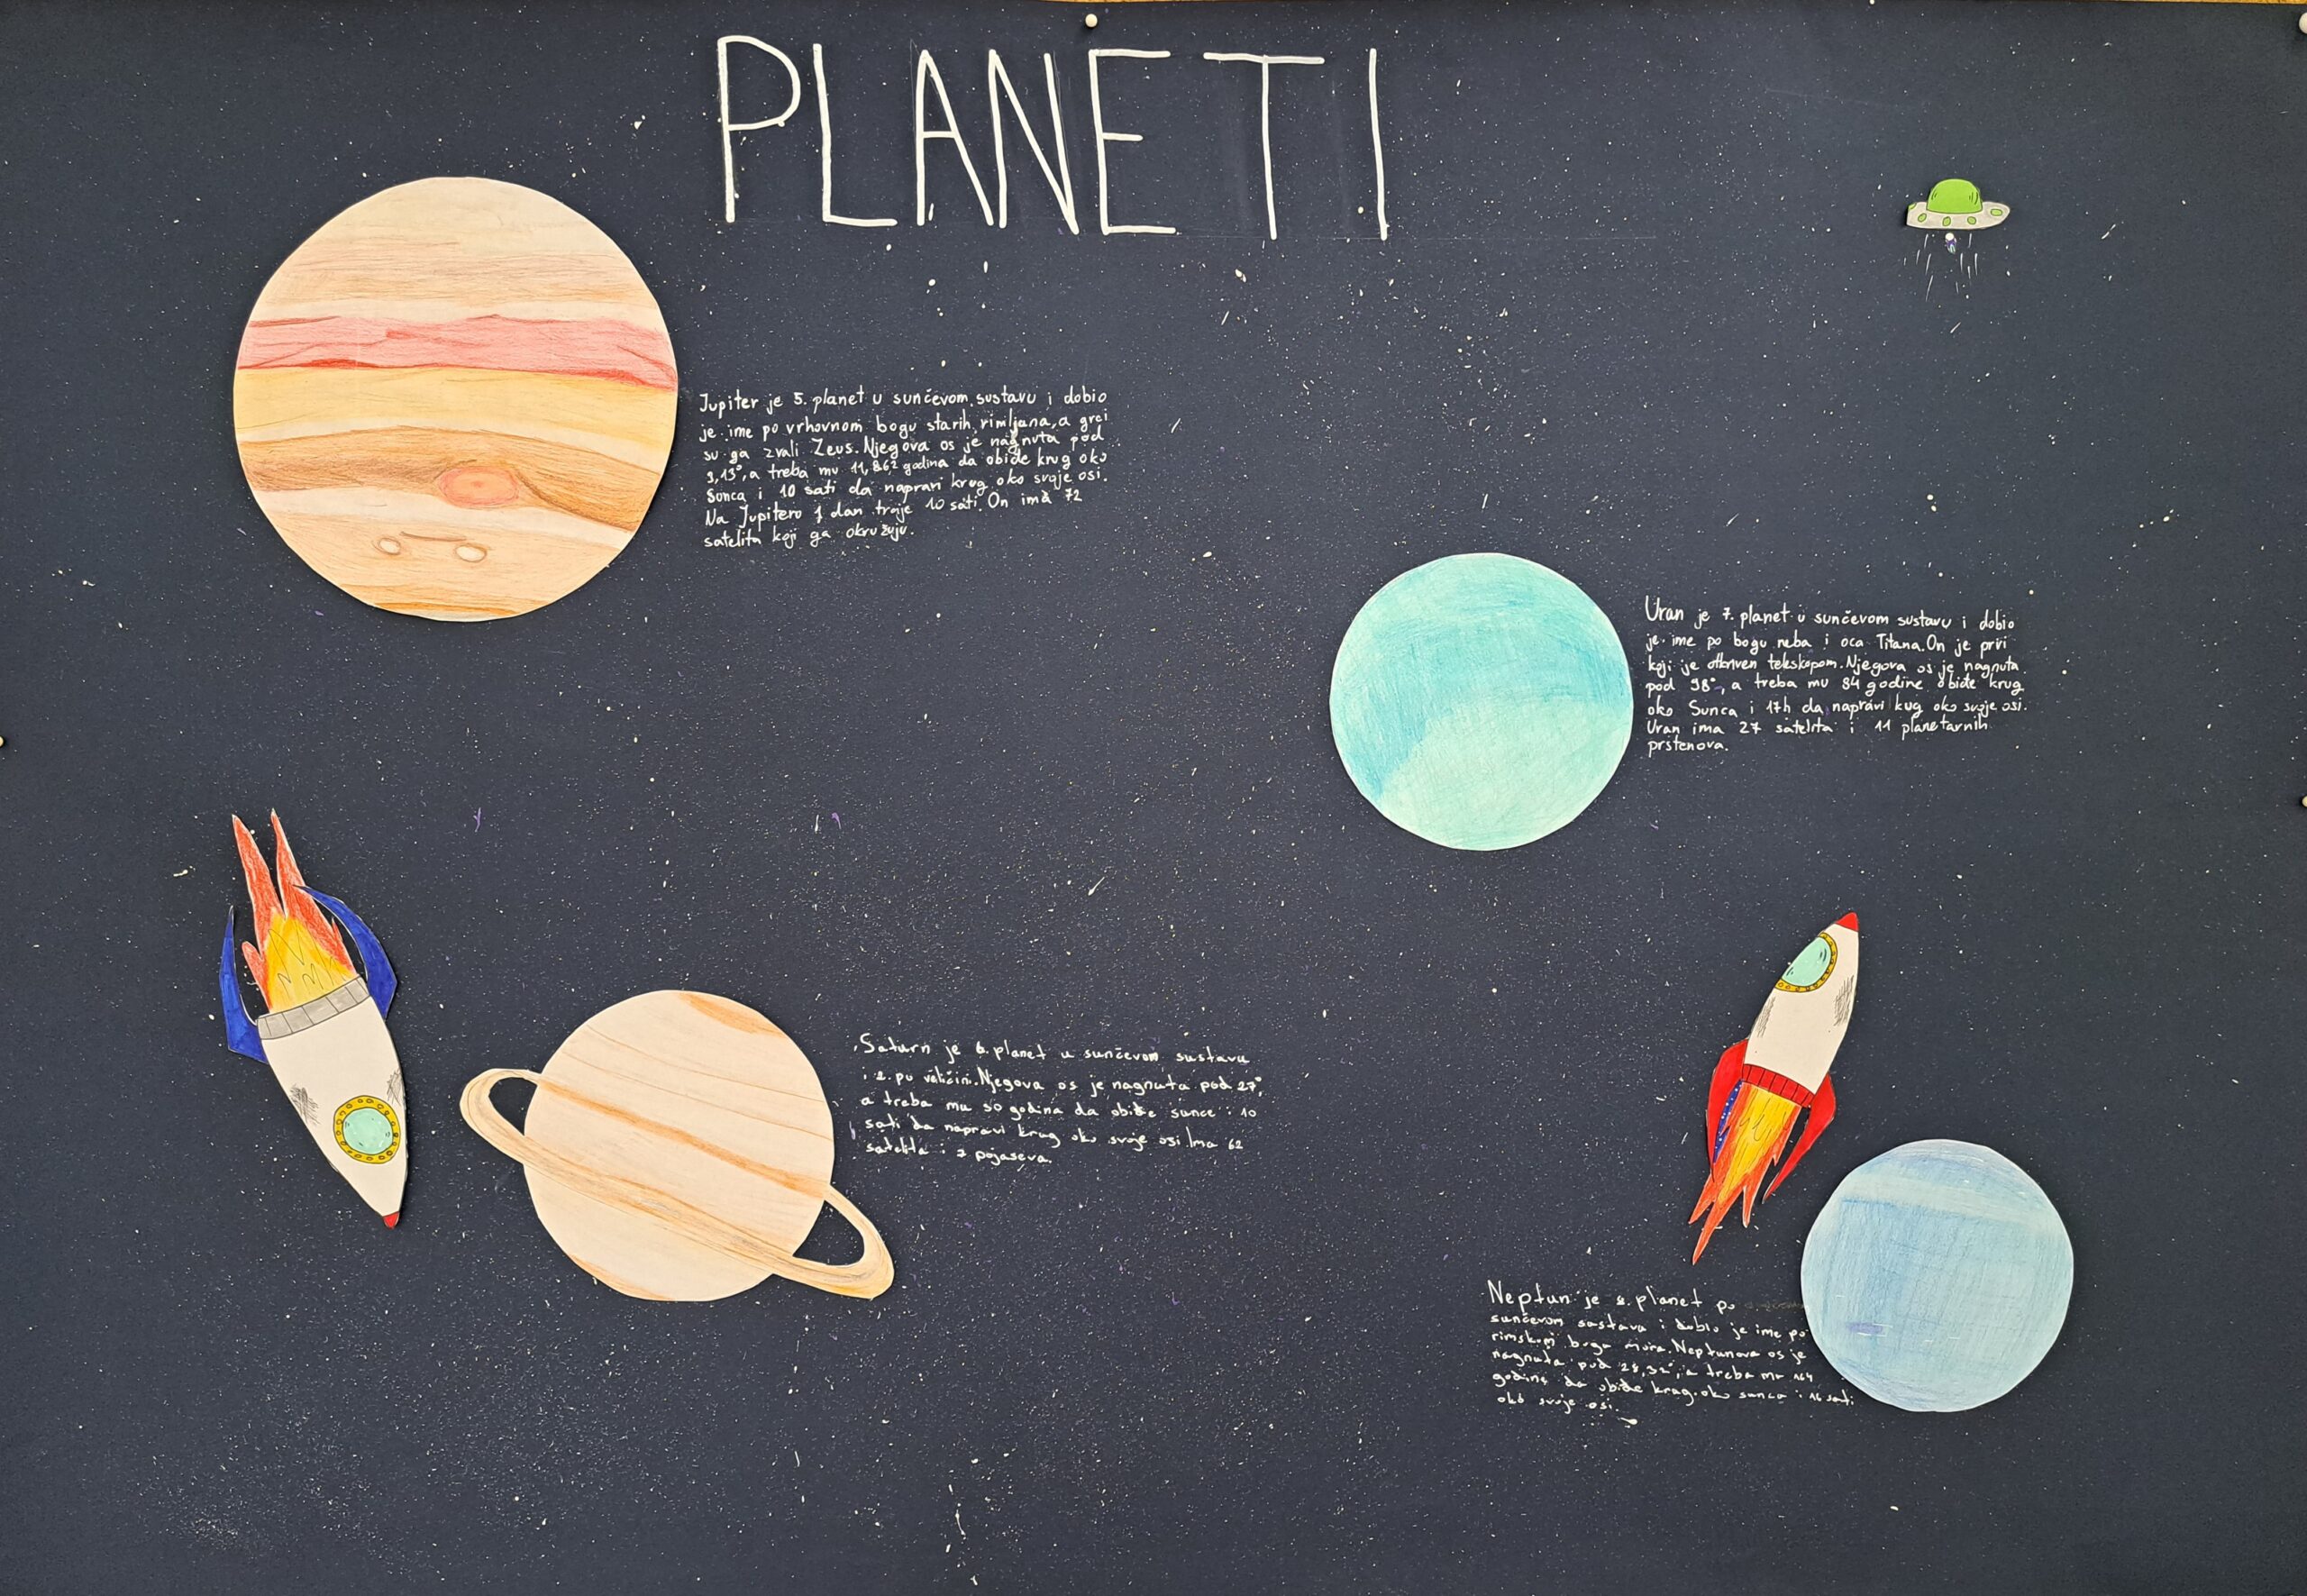 PLANETI
Jupiter je 5. planet u sunčevom sustavu i dobio
je ime po vrhovnom bogu starih rimljana, a grci
su ga zvali Zeus. Njegova os je nagnuta pod
3,13°, a treba mu 11,862 godina da obiđe krug oko
Sunca i 10 sati da napravi krug oko svoje osi.
Na Jupiteru 1 dan traje 10 sati. On ima 72
satelita koji ga okružuju.
Uran je 7. planet u sunčevom sustavu i dobio
je ime po bogu neba i oca Titana. On je prvi
koji je otkriven teleskopom. Njegova os je nagnuta
pod 98°, a treba mu 84 godine obiđe krug
oko Sunca i 17h da napravi kug oko svoje osi.
Uran ima 27 satelita i 11 planetarnih
prstenova.
Saturn je 6. planet u sunčevom sustavu
i 2. po veličini. Njegova os je nagnuta pod 27°,
a treba mu 30 godina da obiđe sunce i 10
sati da napravi krug oko svoje osi. Ima 62
satelita i 7 pojaseva.
Neptun je 8. planet po
sunčevom sustavu i dobio je ime po
rimskom bogu mora. Neptunova os je
nagnuta pod 28,32°, a treba mu 164
godine da obiđe krug oko sunca i 16 sati
oko svoje osi.